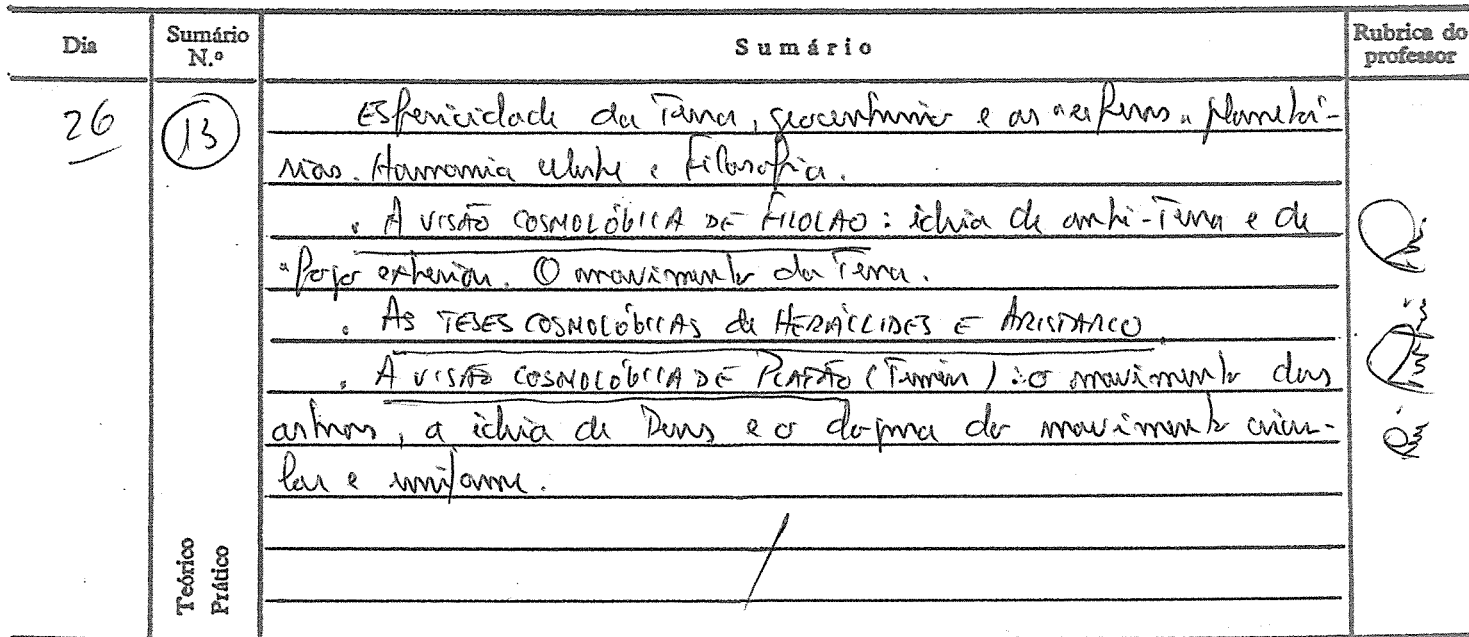 Dia
Sumário N.º
Sumário
Rubrica do professor
26
13
Esfericidade da Terra, geocentrismo e as esferas planetá-
rias. Harmonia celeste e Filosofia.
. A VISÃO COSMOLÓGICA DE FILOLAO: ideia de anti-Terra e de
"fogo exterior. O movimento da Terra.
. AS TESES COSMOLÓGICAS de HERÁCLIDES E ARISTARCO
. A VISÃO COSMOLÓGICA DE PLATÃO (Timeu): o movimento dos
astros, a ideia de Deus e o dogma do movimento circu-
lar e uniforme.
Teórico
Prático